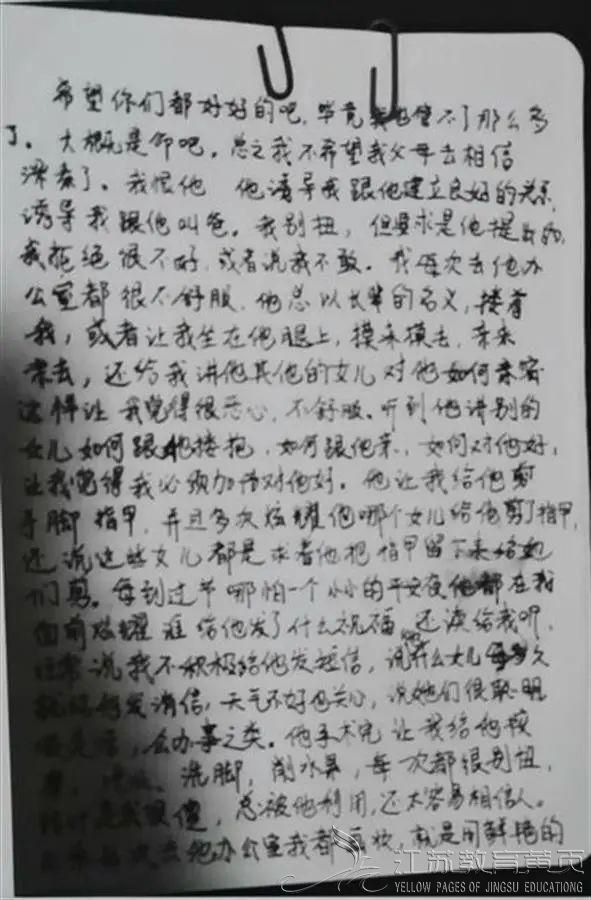 希望你们都好好的吧,毕竟我也管不了那么多
了。大概是命吧。总之我不希望我父母去相信
了。我恨他 他诱导我跟他建立良好的关系,
诱导我跟他叫爸。我别扭,但要求是他提出的,
我拒绝很不好,或者说我不敢。我每次去他办
公室都很不舒服,他总以长辈的名义,搂着
我,或者让我坐在他腿上,摸来摸去,亲来
亲去,还给我讲他其他的女儿对他如何亲密
这样让我觉得很恶心,不舒服。听到他讲别的
女儿如何跟他搂抱,如何跟他亲,如何对他好,
让我觉得我必须加倍对他好。他让我给他剪
手脚指甲,并且多次炫耀他哪个女儿给他剪了指甲,
还说这些女儿都是求着他把指甲留下来给她
们剪。每到过节哪怕一个小小的平安夜他都在我
面前炫耀谁给他发了什么祝福,还读给我听,
经常说我不积极给他发短信,说什么女儿每多久
给他发消息,天气不好也关心,说她们很聪明
会办事之类。他手术完让我给他按
洗脚,削水果,每次都很别扭,
我很傻,总被他利用,还太容易相信人。
去他办公室我都,就是用鲜艳的
江苏教育黄页
YELLOW PAGES OF JINGSU EDUCATIONG